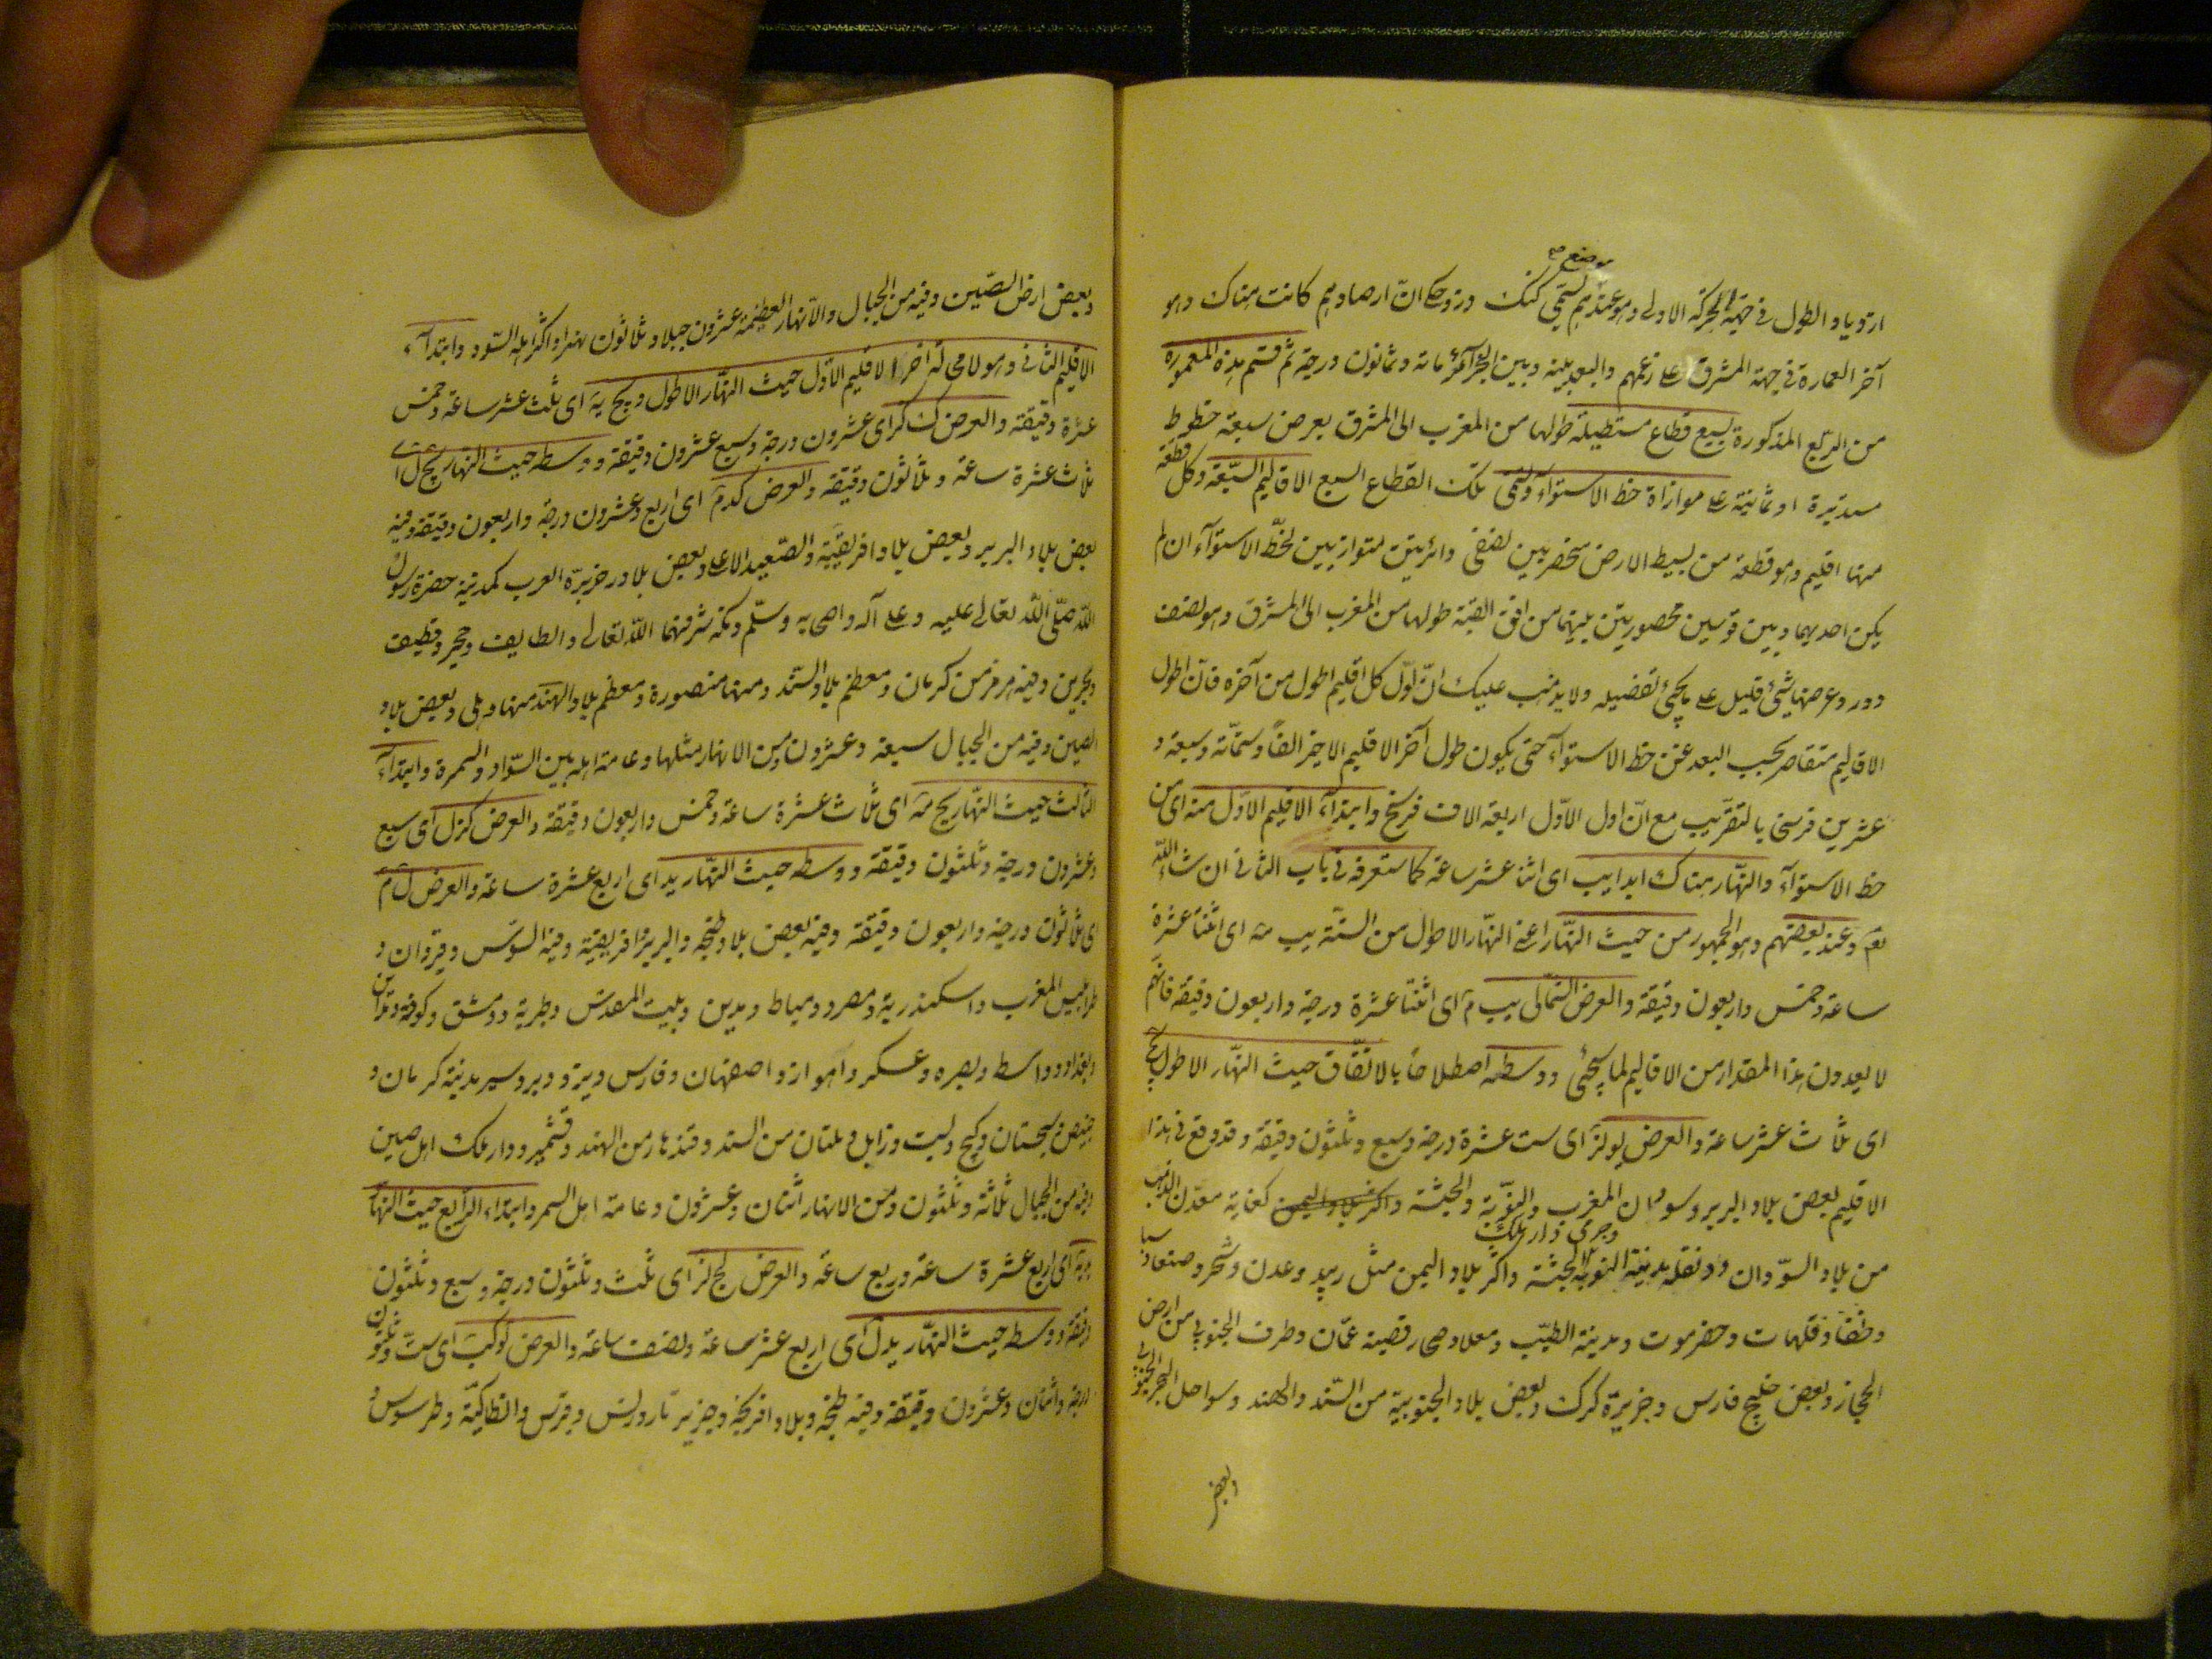 موضع صح
ازدياد الطول في جهة الحركة الاولى وهو عندهم يسمى كنك دز وحكى ان ارصادهم كانت هناك وهو
آخر العمارة في جهة المشرق على زعمهم والبعد بينه وبين الجزائر مائة وثمانون درجة ثم قسم هذه المعمورة
من الربع المذكورة بسبع قطاع مستطيلة طولها من المغرب الى المشرق بعرض سبعة خطوط
مستديرة او ثمانية على موازاة خط الاستواء وتسمى تلك القطاع السبع الاقاليم السبعة وكل قطعة
منها اقليم وهو قطعة من بسيط الارض منحصر بين نصفي دائرتين متوازيين لخط الاستوآء ان لم
يكن احديهما وبين قوسين محصورتين بينهما من افق القبة طولها من المغرب الى المشرق وهو نصف
دور وعرضها شيء قليل على ما يجيء تفصيله ولا يذهب عليك ان اول كل اقليم اطول من آخره فان اطول
الاقاليم متقاصر بحسب البعد عن خط الاستوآء حتى يكون طول آخر الاقليم الاخير الفا وستمائة وسبعة و
عشرين فرسخا بالتقريب مع ان اول الاول اربعة الاف فرسخ وابتدآء الاقليم الاول منه اى من
خط الاستوآء والنهار هناك ابدا يب اى اثنا عشر ساعة كما ستعرفه في باب الثاني ان شاء الله
تعم وعند بعضهم وهو الجمهور من حيث النهار اعني النهار الاطول من السنة يب مه اى اثنتا عشرة
ساعة وخمس واربعون دقيقة والعرض الشمالي يب م اى اثنتا عشرة درجة واربعون دقيقة فانهم
لا يعدون هذا المقدار من الاقاليم لما سيجيء ووسطه اصطلاحا بالاتفاق حيث النهار الاطول يج
اى ثلاث عشر ساعة والعرض يو لز اى ست عشرة درجة وسبع وثلثون دقيقة وقد وقع في هذا
الاقليم بعض بلاد البربر وسودان المغرب والنوبة والحبشة واكثر بلاد اليمن كغانة معدن الذهب
من بلاد السودان ودنقلة مدينة النوبة وجرمى دار ملك الحبشة واكثر بلاد اليمن مثل زبيد وعدن وشحر وصنعاء وسبا
وظفا وقلهات وحضرموت ومدينة الطيب ومعلا وصحار قصبة عمان وطرف الجنوبي من ارض
الحجاز وبعض خليج فارس وجزيرة كرك وبعض بلاد الجنوبية من السند والهند وسواحل البحر الجنوبي
وبعض
وبعض ارض الصين وفيه من الجبال والانهار العظيمة عشرون جبلا وثلاثون نهرا واكثر اهله السود وابتدآء
الاقليم الثاني وهو لا محالة آخر الاقليم الاول حيث النهار الاطول ويج يه اى ثلث عشر ساعة وخمس
عشرة دقيقة والعرض ك كز اى عشرون درجة وسبع عشرون دقيقة ووسطه حيث النهار يج ل اى
ثلاث عشرة ساعة وثلاثون دقيقة والعرض كد م اى اربع وعشرون درجة واربعون دقيقة وفيه
بعض بلاد البربر وبعض بلاد افريقية والصعيد الاعلى وبعض بلاد جزيرة العرب كمدينة حضرة رسول
الله صلى الله تعالى عليه وعلى آله واصحابه وسلم ومكة شرفهما الله تعالى والطايف وحجر وقطيف
وبحرين وفيه هرمز من كرمان ومعظم بلاد السند ومنها منصورة ومعظم بلاد الهند منها دهلى وبعض بلاد
الصين وفيه من الجبال سبعة وعشرون ومن الانهار مثلها وعامة اهله بين السواد والسمرة وابتدآء
الثالث حيث النهار يج مه اى ثلاث عشرة ساعة وخمس واربعون دقيقة والعرض كز ل اى سبع
وعشرون درجة وثلثون دقيقة ووسطه حيث النهار يد اى اربع عشرة ساعة والعرض ل م
اى ثلاثون درجة واربعون دقيقة وفيه بعض بلاد طنجه والبربر وافريقية وفيه السوس وقيروان و
طرابلس المغرب واسكندرية ومصر ودمياط ومدين وبيت المقدس وطبرية ودمشق وكوفه ومداين
وبغداد وواسط وبصره وعسكر واهواز واصفهان وفارس ويزد وبردسير مدينة كرمان و
خبيص وسجستان وكيج وبست وزابل وملتان من السند وقندهار من الهند وقشمير ودار ملك اهل صين
وفيه من الجبال ثلثة وثلثون ومن الانهار اثنان وعشرون وعامة اهل السمر وابتداء الرابع حيث النهار
يد يه اى اربع عشرة ساعة وربع ساعة والعرض لج لز اى ثلث وثلثون درجة وسبع وثلثون
دقيقة ووسطه حيث النهار يد ل اى اربع عشر ساعة ونصف ساعة والعرض لو كب اى ست وثلثون
درجة واثنان وعشرون دقيقة وفيه طنجه وبلاد افرنجة وجزير تا رودس وقبرس وانطاكية وطرسوس